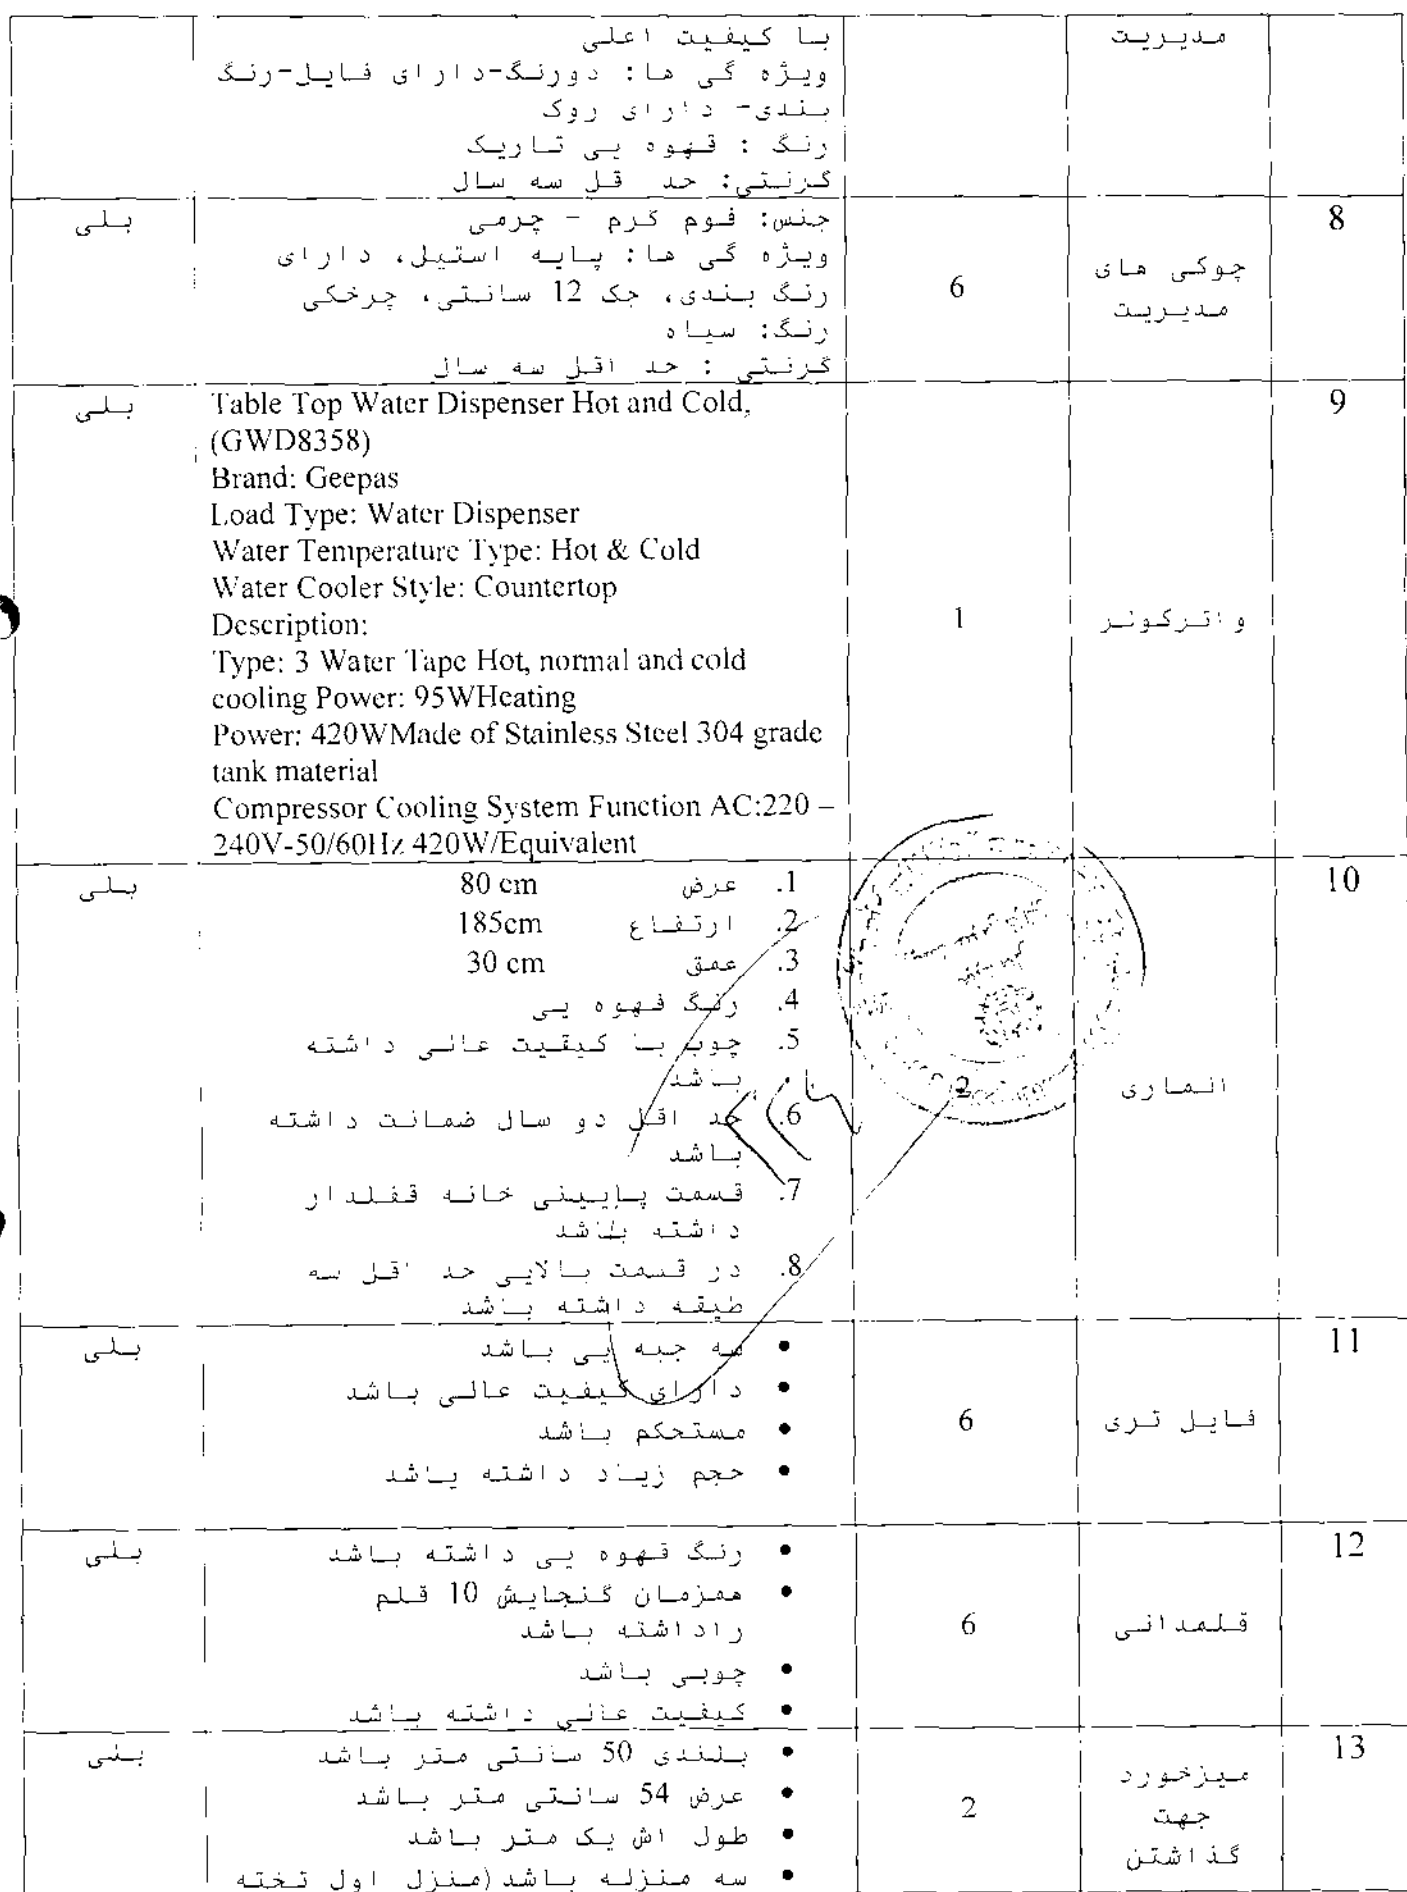 مدیریت
با کیفیت اعلی
ویژه گی ها: دورنگ-دارای فایل-رنگ
بندی- دارای روک
رنگ : قهوه یی تاریک
گرنتی: حد قل سه سال
8
چوکی های
مدیریت
6
جنس: فوم کرم - چرمی
ویژه گی ها: پایه استیل، دارای
رنگ بندی، جک 12 سانتی، چرخکی
رنگ: سیاه
گرنتی : حد اقل سه سال
بلی
9
واترکولر
1
Table Top Water Dispenser Hot and Cold,
(GWD8358)
Brand: Geepas
Load Type: Water Dispenser
Water Temperature Type: Hot & Cold
Water Cooler Style: Countertop
Description:
Type: 3 Water Tape Hot, normal and cold
cooling Power: 95WHeating
Power: 420WMade of Stainless Steel 304 grade
tank material
Compressor Cooling System Function AC:220 –
240V-50/60Hz 420W/Equivalent
بلی
10
الماری
2
1. عرض 80 cm
2. ارتفاع 185cm
3. عمق 30 cm
4. رنگ قهوه یی
5. چوب با کیفیت عالی داشته
باشد
6. حد اقل دو سال ضمانت داشته
باشد
7. قسمت پایینی خانه قفلدار
داشته باشد
8. در قسمت بالایی حد اقل سه
طبقه داشته باشد
بلی
11
فایل تری
6
• سه جبه یی باشد
• دارای کیفیت عالی باشد
• مستحکم باشد
• حجم زیاد داشته باشد
بلی
12
قلمدانی
6
• رنگ قهوه یی داشته باشد
• همزمان گنجایش 10 قلم
راداشته باشد
• چوبی باشد
• کیفیت عالی داشته باشد
بلی
13
میزخورد
جهت
گذاشتن
2
• بلندی 50 سانتی متر باشد
• عرض 54 سانتی متر باشد
• طول اش یک متر باشد
• سه منزله باشد(منزل اول تخته
بلی